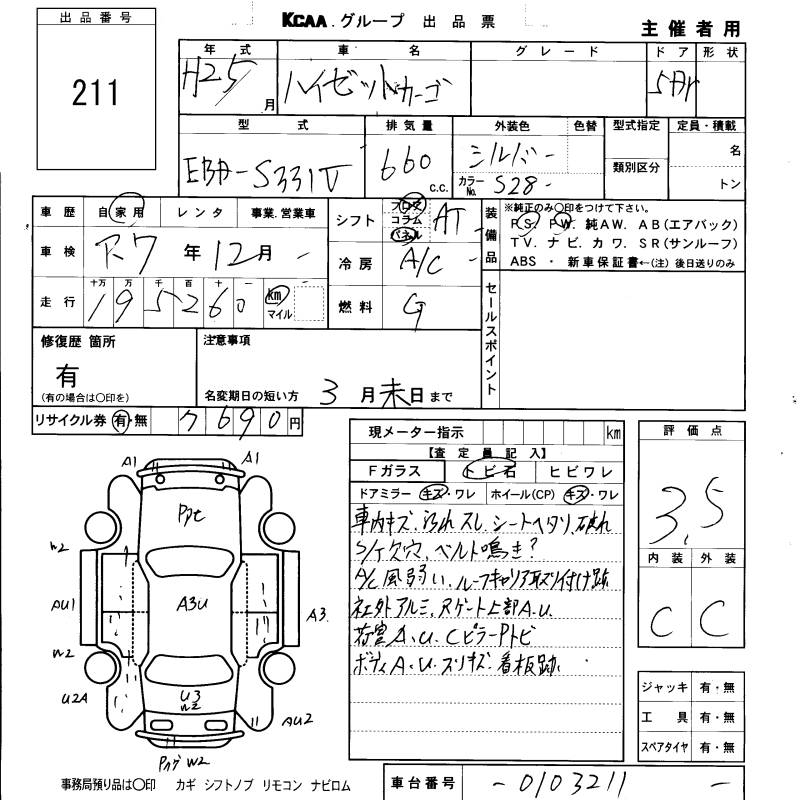 出品番号
211
KCAA.グループ 出品票
主催者用
年式 車名 グレード ドア 形状
H25 月 ハイゼットカーゴ 5
型式 排気量 外装色 色替 型式指定 定員・積載
EBD-S331V 660 c.c. シルバー 名
カラーNo. S28- 類別区分 トン
車歴 自家用 レンタ 事業.営業車
シフト フロア コラム パネル AT
車検 R7年12月
冷房 A/C
走行 十万 万 千 百 十 一 km マイル
195260
燃料 G
装備品 ※純正のみ○印をつけて下さい。
PS. PW. 純AW. AB(エアバック)
TV. ナビ. カワ. SR(サンルーフ)
ABS ・ 新車保証書←(注)後日送りのみ
セールスポイント
修復歴 箇所
有
(有の場合は○印を)
注意事項
名変期日の短い方 3月末日まで
リサイクル券 有・無 7690円
現メーター指示 km
【査定員記入】
Fガラス トビ石 ヒビワレ
ドアミラー キズ・ワレ ホイール(CP) キズ・ワレ
車内キズ、汚れ スレ、シートヘタリ、破れ
S/ケ欠穴、ベルト鳴き?
A/C風弱い、ルーフキャリア取り付け跡
社外アルミ、Rゲート上部A.U.
荷室A.U. CピラーPトビ
ボディA.U. スリキズ. 看板跡.
評価点
3.5
内装 外装
C C
ジャッキ 有・無
工具 有・無
スペアタイヤ 有・無
A1 A1
Ppt
W2
AU1 A3U A3.
W2
U2A U3 W2 AU2
W2
事務局預り品は○印 カギ シフトノブ リモコン ナビロム
車台番号 -0103211 -